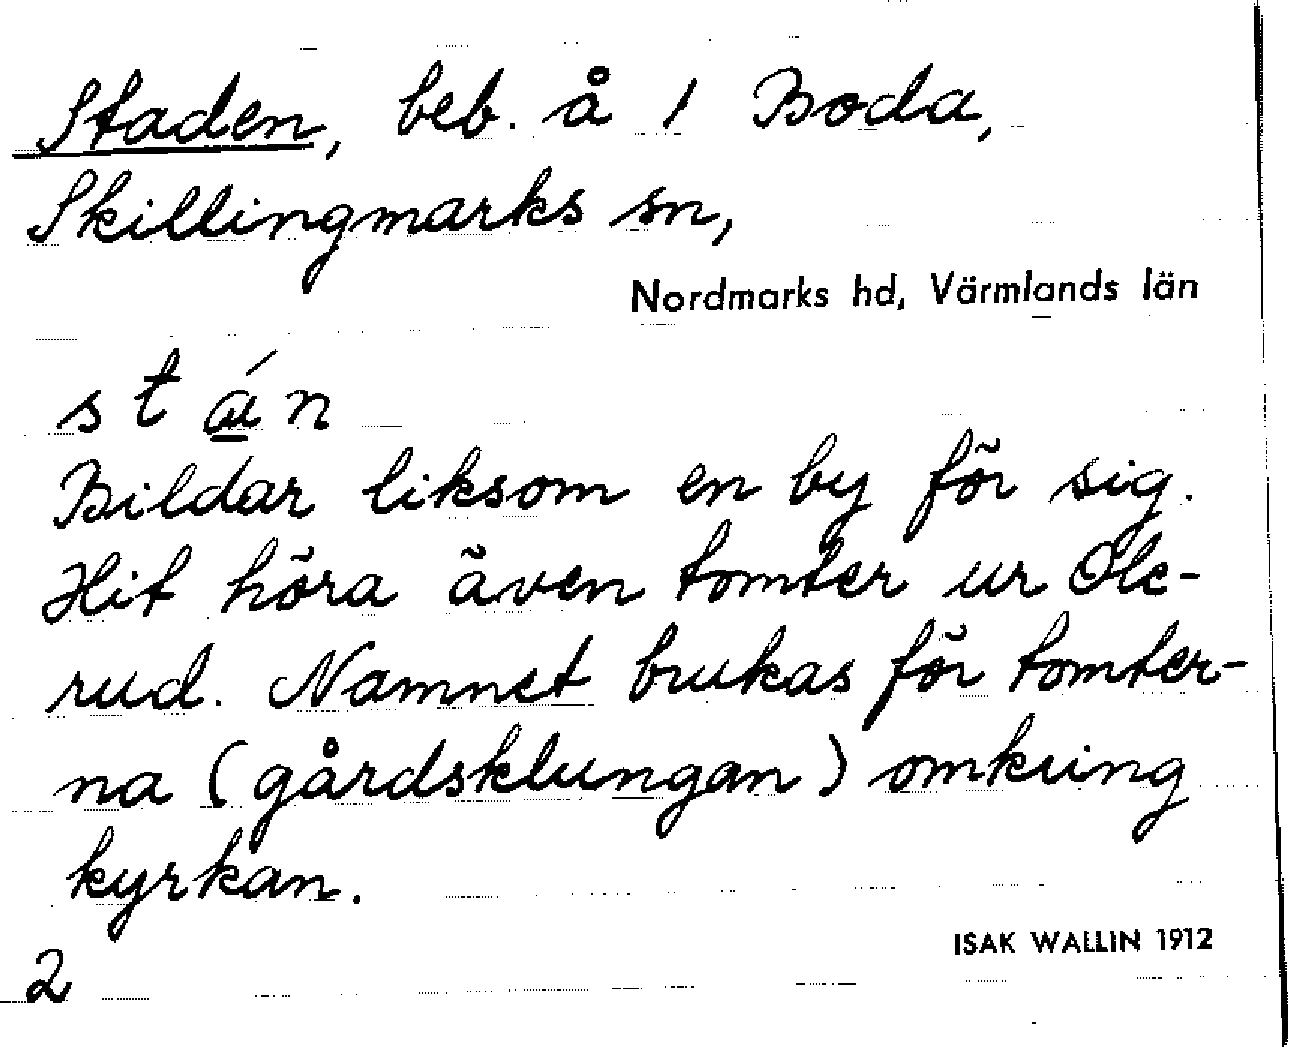 Staden, beb. å 1 Boda,
Skillingmarks sn,
Nordmarks hd, Värmlands län
s t á̱ n
Bildar liksom en by för sig.
Hit höra även tomter ur Ole-
rud. Namnet brukas för tomter-
na (gårdsklungan) omkring
kyrkan.
ISAK WALLIN 1912
2